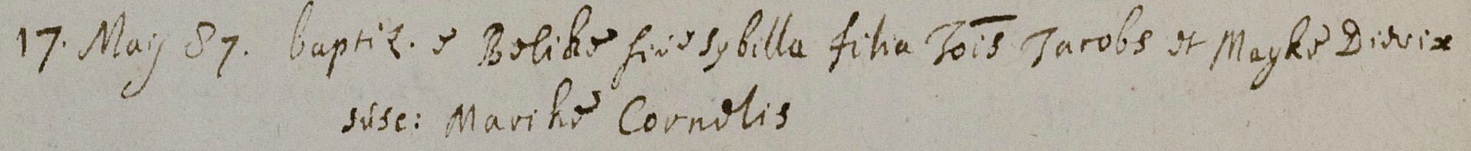 17. Maij 87. baptiz. e Belike sive sybilla filia Jois Jacobs et Mayke Dierix
susc: Marike Cornelis